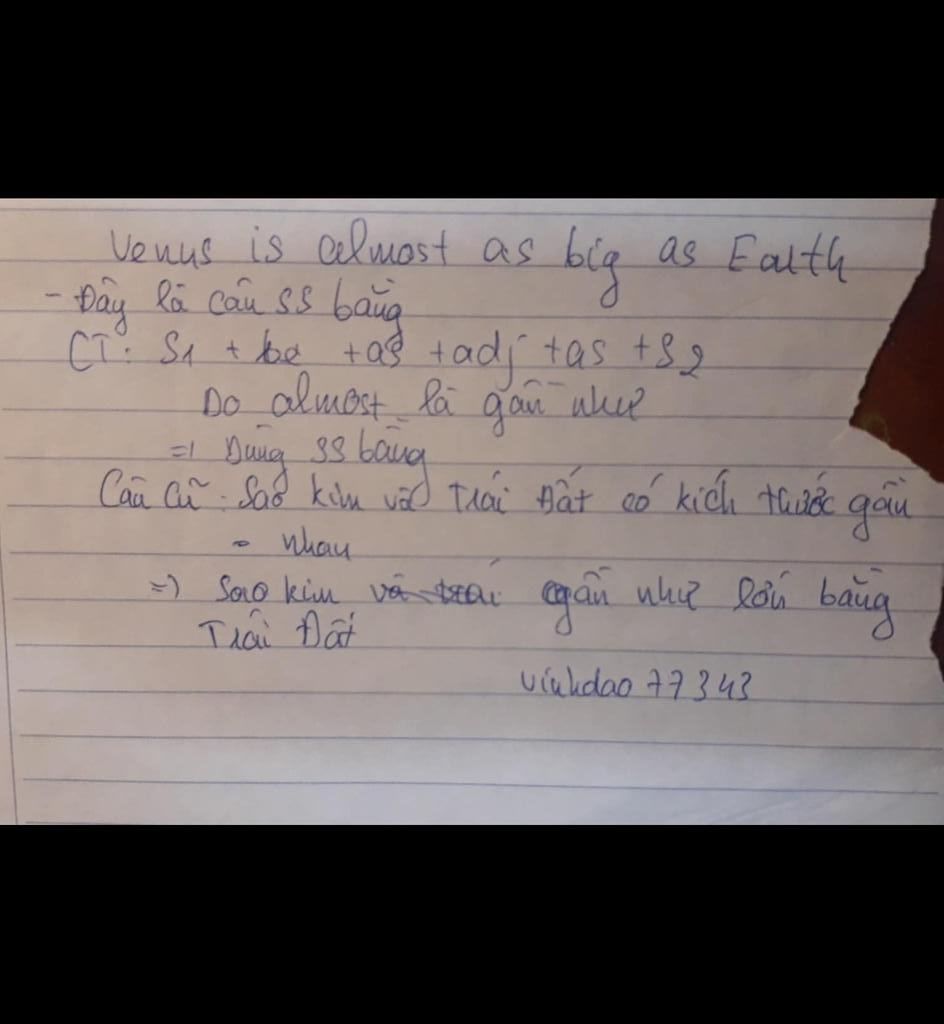 Venus is almost as big as Earth
- Đây là câu SS bằng
CT: S1 + be + as + adj + as + S2
Do almost là gần như
=) Dùng SS bằng
Câu cũ: Sao kim và Trái Đất có kích thước gần
= nhau
=) Sao kim và trái gần như lớn bằng
Trái Đất
vinhdao77343